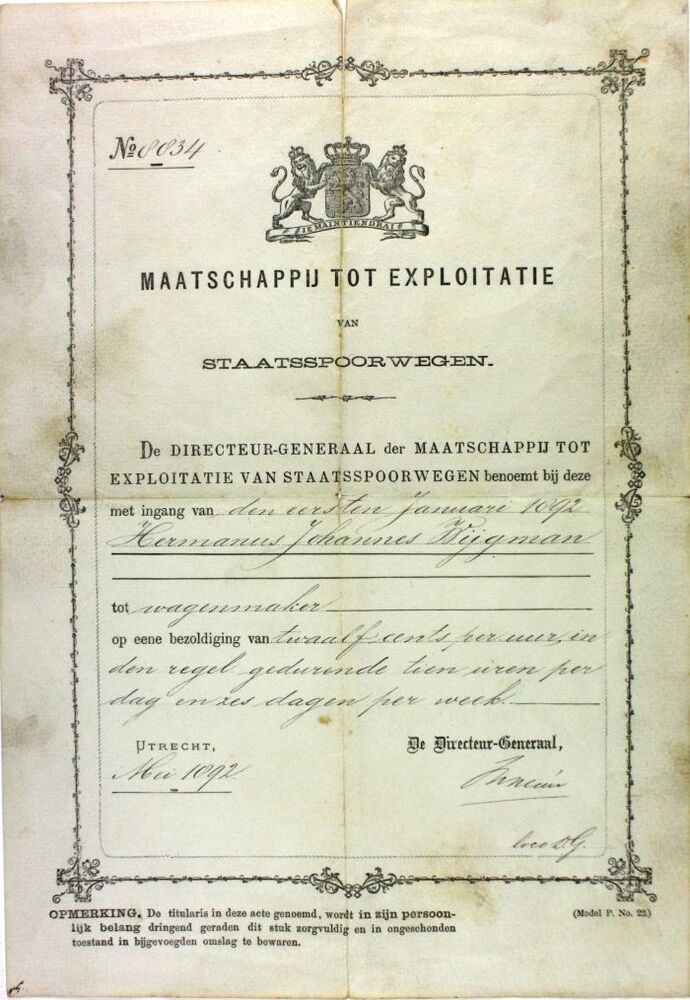 No 8834
JE MAINTIENDRAI
MAATSCHAPPIJ TOT EXPLOITATIE
VAN
STAATSSPOORWEGEN.
De DIRECTEUR-GENERAAL der MAATSCHAPPIJ TOT
EXPLOITATIE VAN STAATSSPOORWEGEN benoemt bij deze
met ingang van den eersten Januari 1892
Hermanus Johannes Wijgman
tot wagenmaker
op eene bezoldiging van twaalf cents per uur, in
den regel gedurende tien uren per
dag en zes dagen per week.
UTRECHT,
De Directeur-Generaal,
Mei 1892
loco D.G.
OPMERKING. De titularis in deze acte genoemd, wordt in zijn persoon-
lijk belang dringend geraden dit stuk zorgvuldig en in ongeschonden
toestand in bijgevoegden omslag te bewaren.
(Model P. No. 22.)